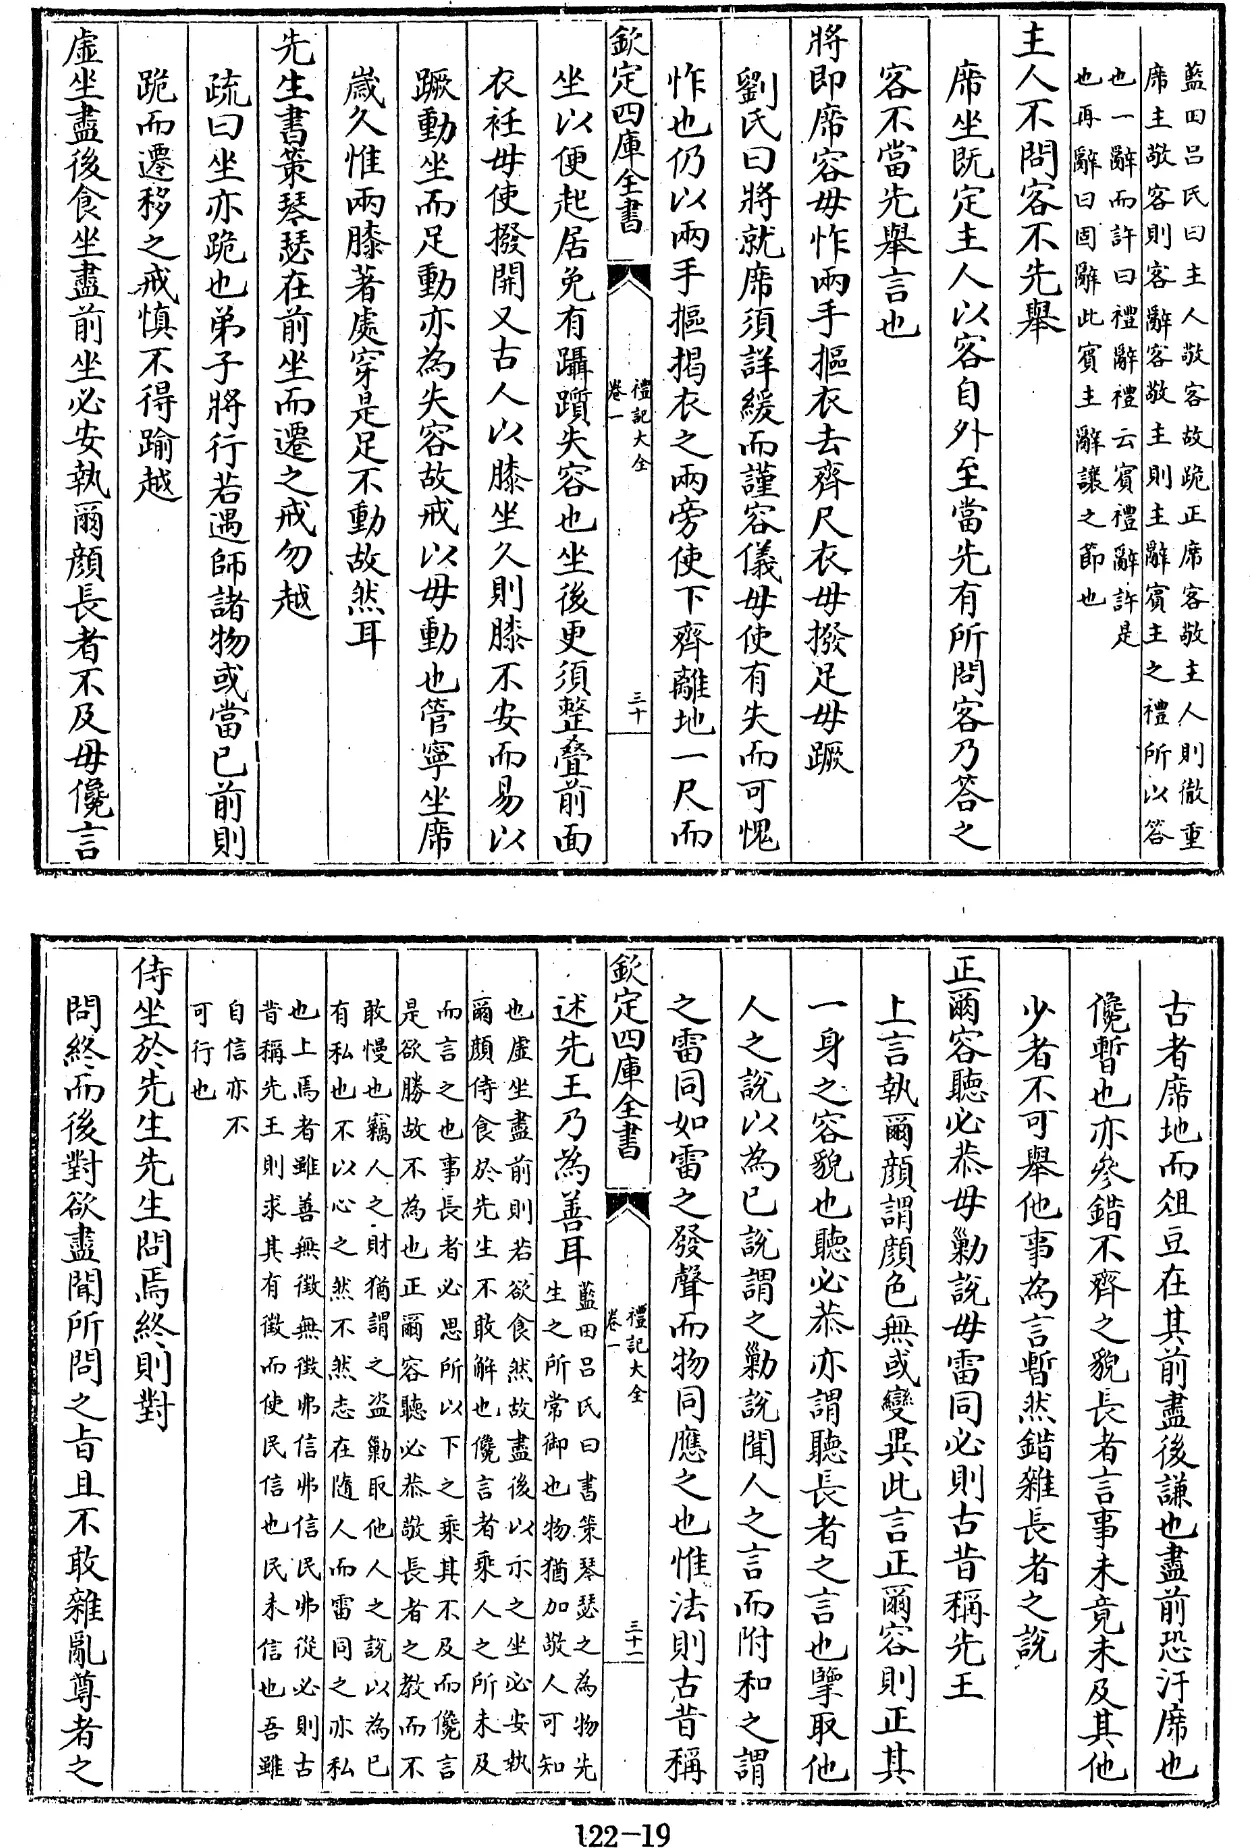 藍田呂氏曰主人敬客故跪正席客敬主人則徹重
席主敬客則客辭客敬主則主辭賓主之禮所以答
也一辭而許曰禮辭禮云賓禮辭許是
也再辭曰固辭此賓主辭讓之節也
主人不問客不先舉
席坐既定主人以客自外至當先有所問客乃答之
客不當先舉言也
將即席容毋怍兩手摳衣去齊尺衣毋撥足毋蹶
劉氏曰將就席須詳緩而謹容儀毋使有失而可愧
怍也仍以兩手摳揭衣之兩旁使下齊離地一尺而
欽定四庫全書
禮記大全
卷一
三十
坐以便起居免有躡躓失容也坐後更須整疊前面
衣衽毋使撥開又古人以膝坐久則膝不安而易以
蹶動坐而足動亦為失容故戒以毋動也管寧坐席
歲久惟兩膝著處穿是足不動故然耳
先生書策琴瑟在前坐而遷之戒勿越
疏曰坐亦跪也弟子將行若遇師諸物或當已前則
跪而遷移之戒慎不得踰越
虛坐盡後食坐盡前坐必安執爾顏長者不及毋儳言
古者席地而俎豆在其前盡後謙也盡前恐汙席也
儳暫也亦參錯不齊之貌長者言事未竟未及其他
少者不可舉他事為言暫然錯雜長者之說
正爾容聽必恭毋勦說毋雷同必則古昔稱先王
上言執爾顏謂顏色無或變異此言正爾容則正其
一身之容貌也聽必恭亦謂聽長者之言也擥取他
人之說以為已說謂之勦說聞人之言而附和之謂
之雷同如雷之發聲而物同應之也惟法則古昔稱
欽定四庫全書
禮記大全
卷一
三十一
述先王乃為善耳
藍田呂氏曰書策琴瑟之為物先
生之所常御也物猶加敬人可知
也虛坐盡前則若欲食然故盡後以示之坐必安執
爾顏侍食於先生不敢解也儳言者乘人之所未及
而言之也事長者必思所以下之乘其不及而儳言
是欲勝故不為也正爾容聽必恭敬長者之教而不
敢慢也竊人之財猶謂之盜勦取他人之說以為已
有私也不以心之然不然志在隨人而雷同之亦私
也上焉者雖善無徵無徵弗信弗信民弗從必則古
昔稱先王則求其有徵而使民信也民未信也吾雖
自信亦不
可行也
侍坐於先生先生問焉終則對
問終而後對欲盡聞所問之旨且不敢雜亂尊者之
122-19